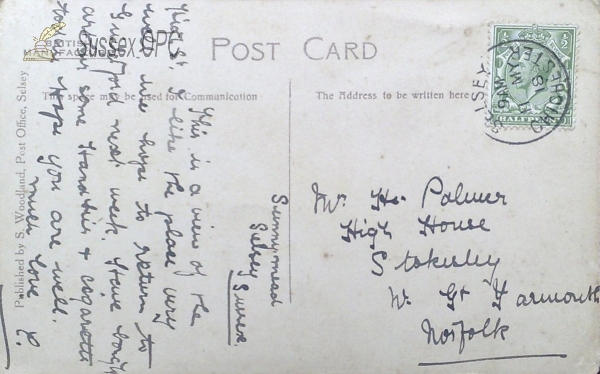 POST CARD
BRITISH
MANUFACTURE
Sussex OPC
This space may be used for Communication
The Address to be written here
Published by S. Woodland, Post Office, Selsey
HALFPENNY
SELSEY
CHICHESTER
Sunnymead
Selsey
Sussex
This is a view of the
High St. I like the place very
well. We hope to return to
next week. Have bought
some & cigarettes
today. Hope you are well.
much love
Mr. H. Palmer
High House
Stokesby
Nr Gt Yarmouth
Norfolk